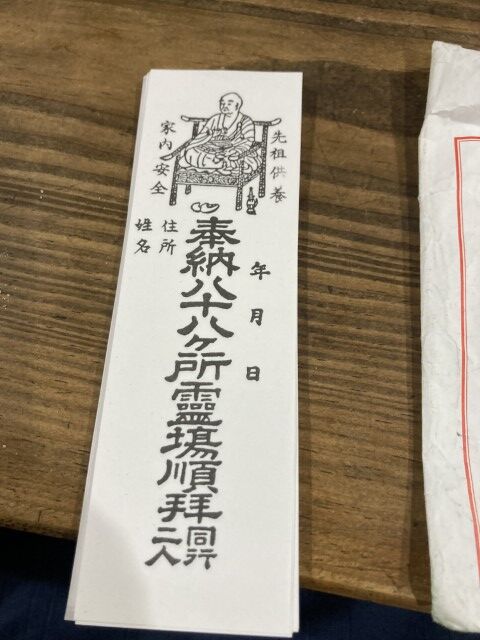 先祖供養
家内安全
年月日
奉納八十八ヶ所靈場順拜同行二人
住所
姓名